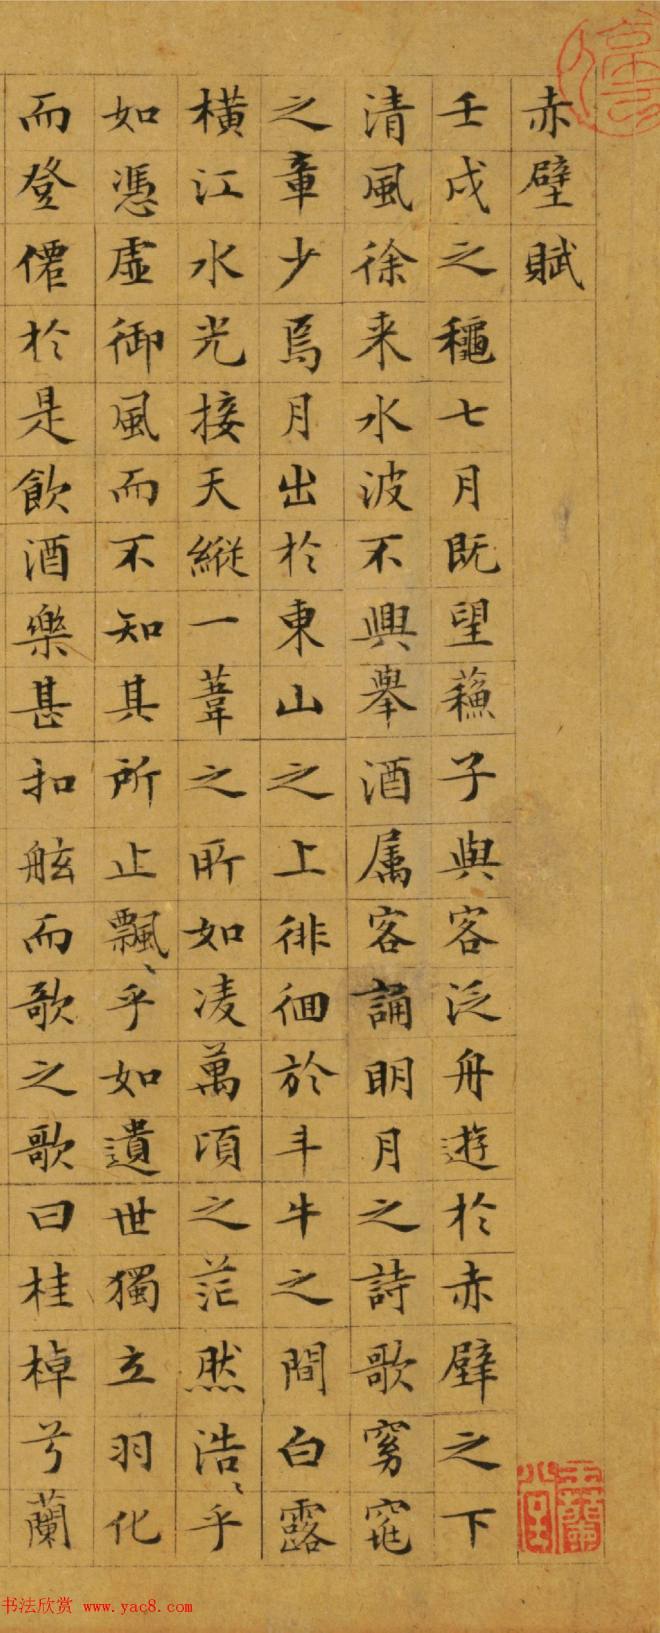 赤壁賦
壬戌之穐七月既望蘓子與客泛舟遊於赤壁之下
清風徐来水波不興舉酒属客誦明月之詩歌窈窕
之章少焉月出於東山之上徘徊於斗牛之間白露
横江水光接天縱一葦之所如凌萬頃之茫然浩〻乎
如憑虛御風而不知其所止飄〻乎如遺世獨立羽化
而登僊於是飲酒樂甚扣舷而歌之歌曰桂棹兮蘭
书法欣赏 www.yac8.com